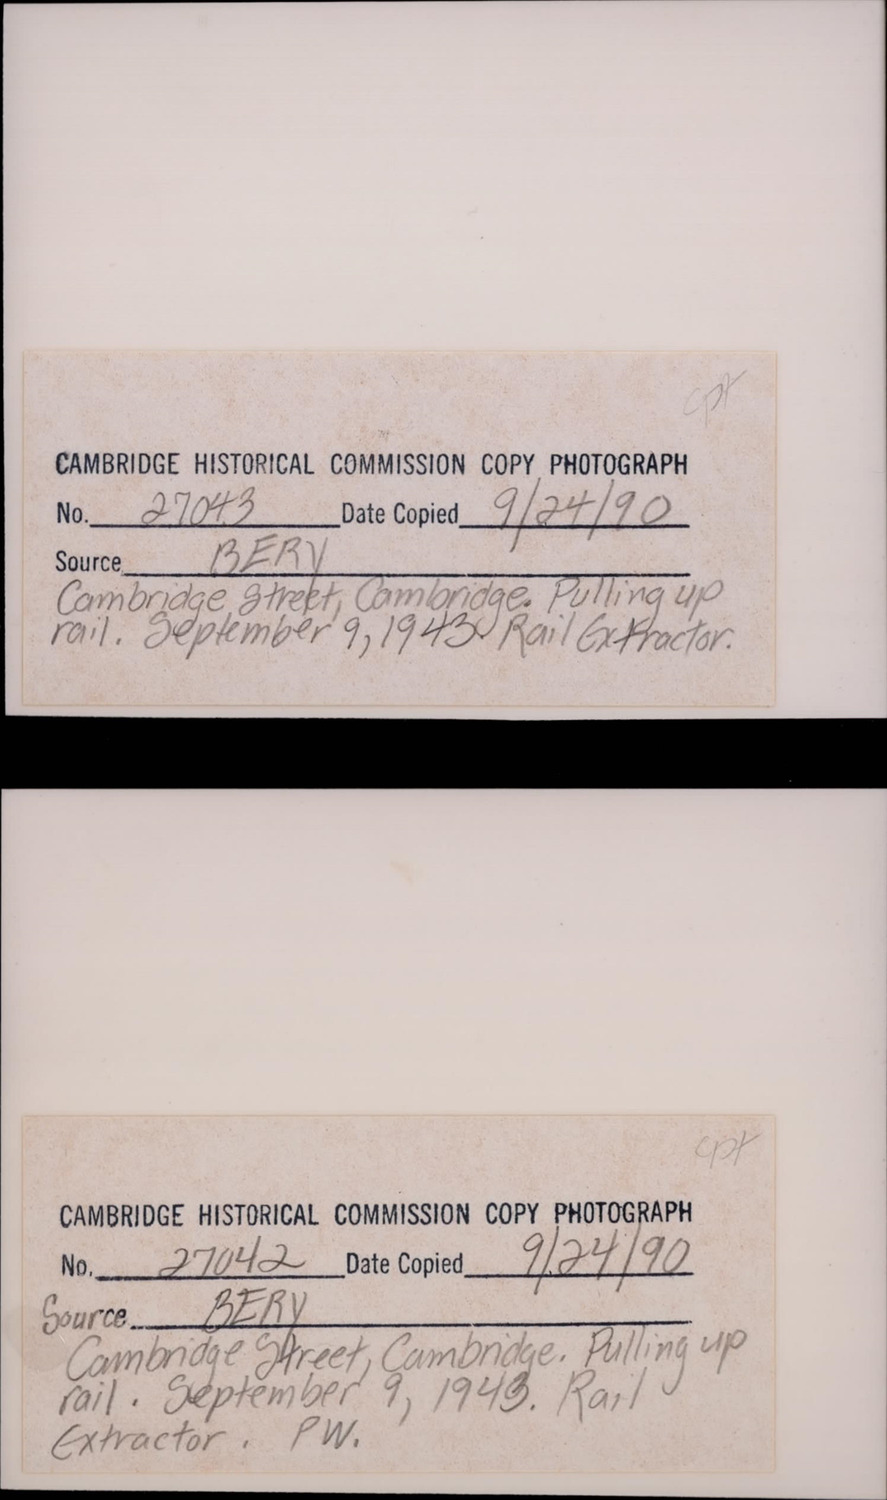 cpt
CAMBRIDGE HISTORICAL COMMISSION COPY PHOTOGRAPH
No. 27043 Date Copied 9/24/90
Source BERY
Cambridge Street, Cambridge. Pulling up
rail. September 9, 1943. Rail Extractor.
cpt
CAMBRIDGE HISTORICAL COMMISSION COPY PHOTOGRAPH
No. 27042 Date Copied 9/24/90
Source BERY
Cambridge Street, Cambridge. Pulling up
rail. September 9, 1943. Rail
Extractor. PW.